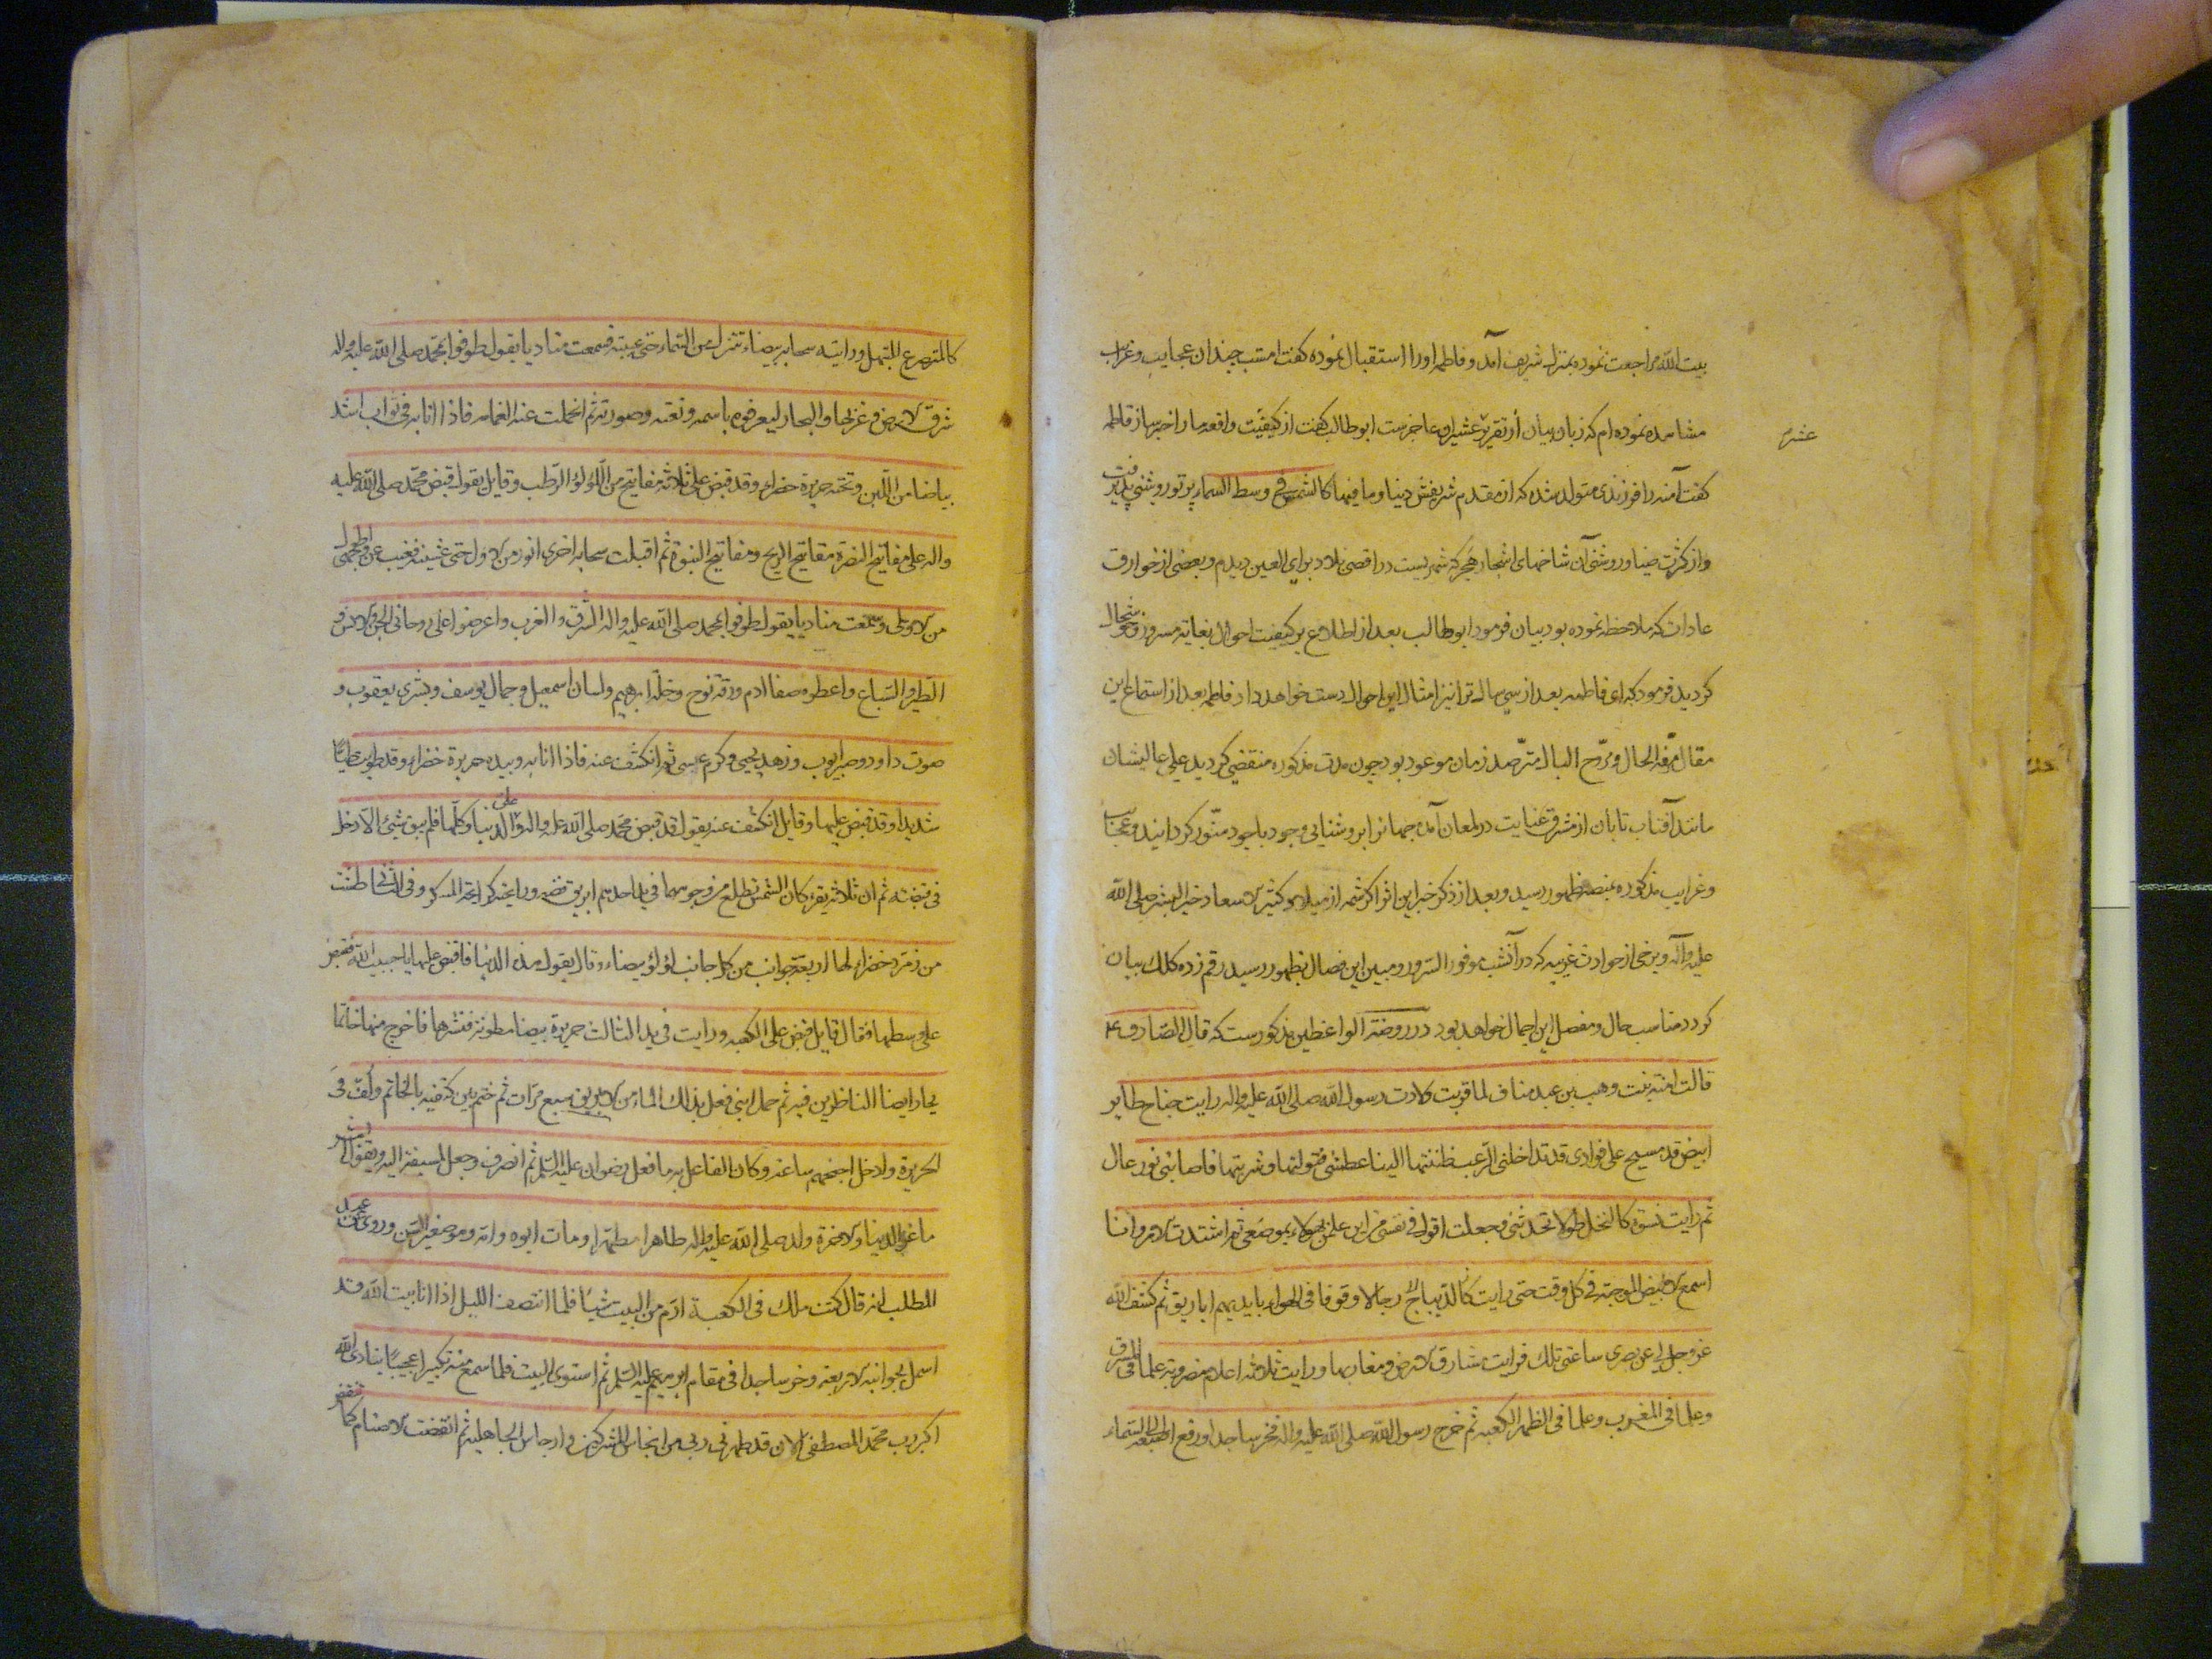 بیت الله مراجعت نموده بمنزل شریف آمد و فاطمه اورا استقبال نموده کفت امشب چندان عجایب وغرایب
مشاهده نموده ام که زبان بیان از تقریر عشیران عاجزست ابوطالب کفت از کیفیت واقعه مارا خبر ساز فاطمه
عشر
کفت آمنه را فرزندی متولد شده که از مقدم شریفش دنیا وما فیها کالشمس فی وسط السماء پرتو روشنی پذیرفت
واز کثرت ضیا وروشنی آن شاخهای اشجار هجر که شهریست در اقصی بلاد برای العین دیدم وبعضی از خوارق
عادات که ملاحظه نموده بود بیان فرمود ابوطالب بعد از اطلاع بر کیفیت احوال بغایة مسرور وخوشحال
کردید فرمود که ای فاطمه بعد از سی سال ترا نیز امثال این احوال دست خواهد داد فاطمه بعد از استماع این
مقال مرفه الحال ومروح البال مترصد زمان موعود بود چون مدت مذکوره منقضی کردید علی عالیشان
مانند آفتاب تابان از مشرق عنایت در لمعان آمده جهانرا بروشنایی وجود باجود منور کردانید وعجایب
وغرایب مذکوره بمنصه ظهور رسید وبعد از ذکر خبر این اثر اکر شمه از میلاد کثیر الاسعاد خیر البشر صلی الله
علیه وآله وبرخی از حوادث غریبه که در آنشب موفور السرور ومبین این فصال بظهور رسید رقم زده کلک بیان
کردد مناسب حال ومفصل این اجمال خواهد بود در روضة الواعظین مذکورست که قال الصادق ع
قالت امنة بنت وهب بن عبد مناف لما قربت ولادت رسول الله صلی الله علیه واله رایت جناح طایر
ابیض قد مسیح علی فوادی قد تداخلنی الرعب ظننتها الینا عطشی فتولتها وشربتها فاصابنی نور عال
ثم رایت نسوة کالنخل طولا تحدثنی فجعلت اقول فی نفسی من این علمن هولاء بموضعی ثم اشتدت الامر وانا
اسمع الابیض الوجبة فی کل وقت حتی رایت کالدیباج رجالا وقوفا فی الهواء بایدیهم اباریق ثم کشف الله
عز وجل لی عن بصری ساعتی تلک فرایت مشارق الارض ومغاربها ورایت ثلاثه اعلام مضروبة علما فی المشرق
وعلما فی المغرب وعلما فی الظهر الکعبه ثم خرج رسول الله صلی الله علیه واله فخر ساجدا ورفع اصبعیه الی السماء
کالمتضرع المبتهل ورایته سحابه بیضاء تنزل من السماء حتی غیبته فسمعت منادیا یقول طوفوا بمحمد صلی الله علیه واله
شرق الارض وغربها والبحار لیعرفوه باسمه ونعته وصورته ثم انجلت عنه الغمامه فاذا انا به فی ثواب اشد
بیاضا من اللبن وتحته حریرة خضراء وقد قبض علی ثلاثه مفاتیح من اللؤلؤ الرطب وقایل یقول قبض محمد صلی الله علیه
واله علی مفاتیح النصرة مفاتیح الریح ومفاتیح النبوة ثم اقبلت سحابه اخری انور من الاول حتی غشیته فغیب عن وجهی اطول
من الاولی وسمعت منادیا یقول طوفوا بمحمد صلی الله علیه واله الشرق والغرب واعرضوا علی روحانی الجن والانس و
الطیر والسباع واعطوه صفا ادم ورقة نوح وخلة ابرهیم ولسان اسمعیل وجمال یوسف وبشری یعقوب و
صوت داود وصبر ایوب وزهد یحیی وکرم عیسی ثم انکشف عنه فاذا انا به وبیده حریرة خضراء وقد طویت طیا
شدیدا وقد قبض علیها وقایل انکشف عنه یقول قد قبض محمد صلی الله علیه واله علی الدنیا وکلها فلم یبق شیئ الا دخل
فی قبضته ثم ان ثلاثه یفره کان الشمس تطلع من وجوهها فی ید احدهم ابریق فضه ورایحة کرایحة المسک وفی الثانی طست
من زمرد خضراء لها اربعة جوانب من کل جانب لؤلؤ بیضاء وقال یقول هذه الدنیا فاقبض علیها یا حبیب الله فقبض
علی وسطها فقال قایل قبض علی الکعبه ورایت فی ید الثالث حریرة بیضا مطویة فنشرها فاخرج منها خاتما
یحار ابصار الناظرین فیه ثم حمل ابنی فغل بذلک الماء من الابریق سبع مرات ثم ختم بین کتفیه بالخاتم ولف فی
الحریرة وادخل اجنحتهم ساعة وکان الفاعل به ما فعل رضوان علیه السلم ثم انصرف وجعل یلتفت الیه ویقول ابشر
ما عز الدنیا والاخرة ولد صلی الله علیه واله طاهرا مطهرا ومات ابوه وامه وهو صغیر السن وروی عن عبد
المطلب انه قال کنت ملک فی الکعبة ارم من البیت شیئا فلما انتصف اللیل اذا انا ببیت الله قد
اسمل بجوانبه الاربعة وخر ساجدا فی مقام ابرهیم علیه السلم ثم استوی البیت فلما سمع منه تکبیرا عجیبا ینادی الله
اکبر رب محمد المصطفی الان قد طهرنی ربی من انجاس المشرکین وارجاس الجاهلیة ثم انقضت الاصنام کما تنقض